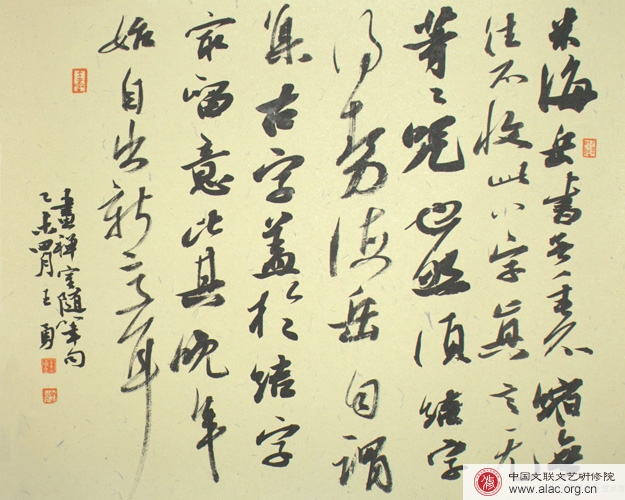 米海岳書無垂不縮無
往不收此八字真言无
等々咒也然須結字
得勢海岳自謂
集古字蓋於結字
最留意比其晚年
始自出新意耳
畫禪室隨筆句
乙未四月王勇
中国文联文艺研修院
www.alac.org.cn